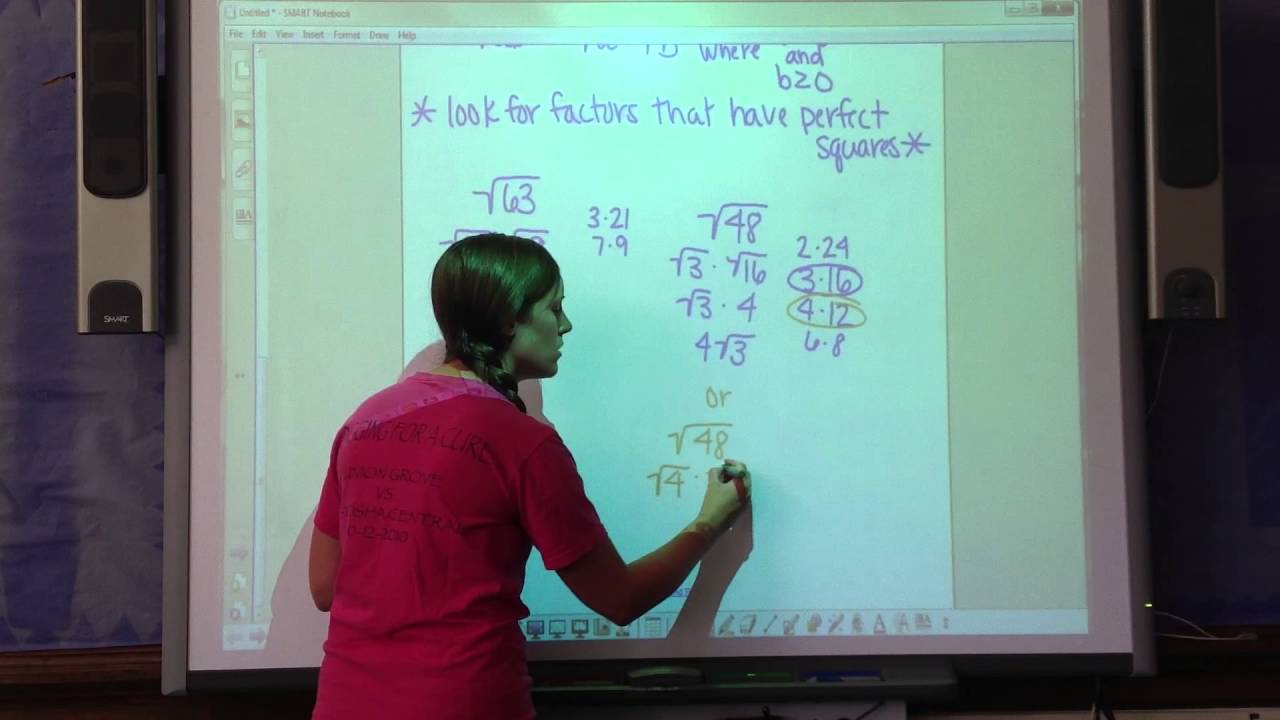 Untitled * - SMART Notebook
File Edit View Insert Format Draw Help
where and
b≥0
* look for factors that have perfect
squares *
√63
3·21
7·9
√48
√3 · √16
√3 · 4
4√3
2·24
3·16
4·12
6·8
or
√48
√4 ·
SMART
FOR A CURE
UNION GROVE
VS
CENTRAL
12-2010